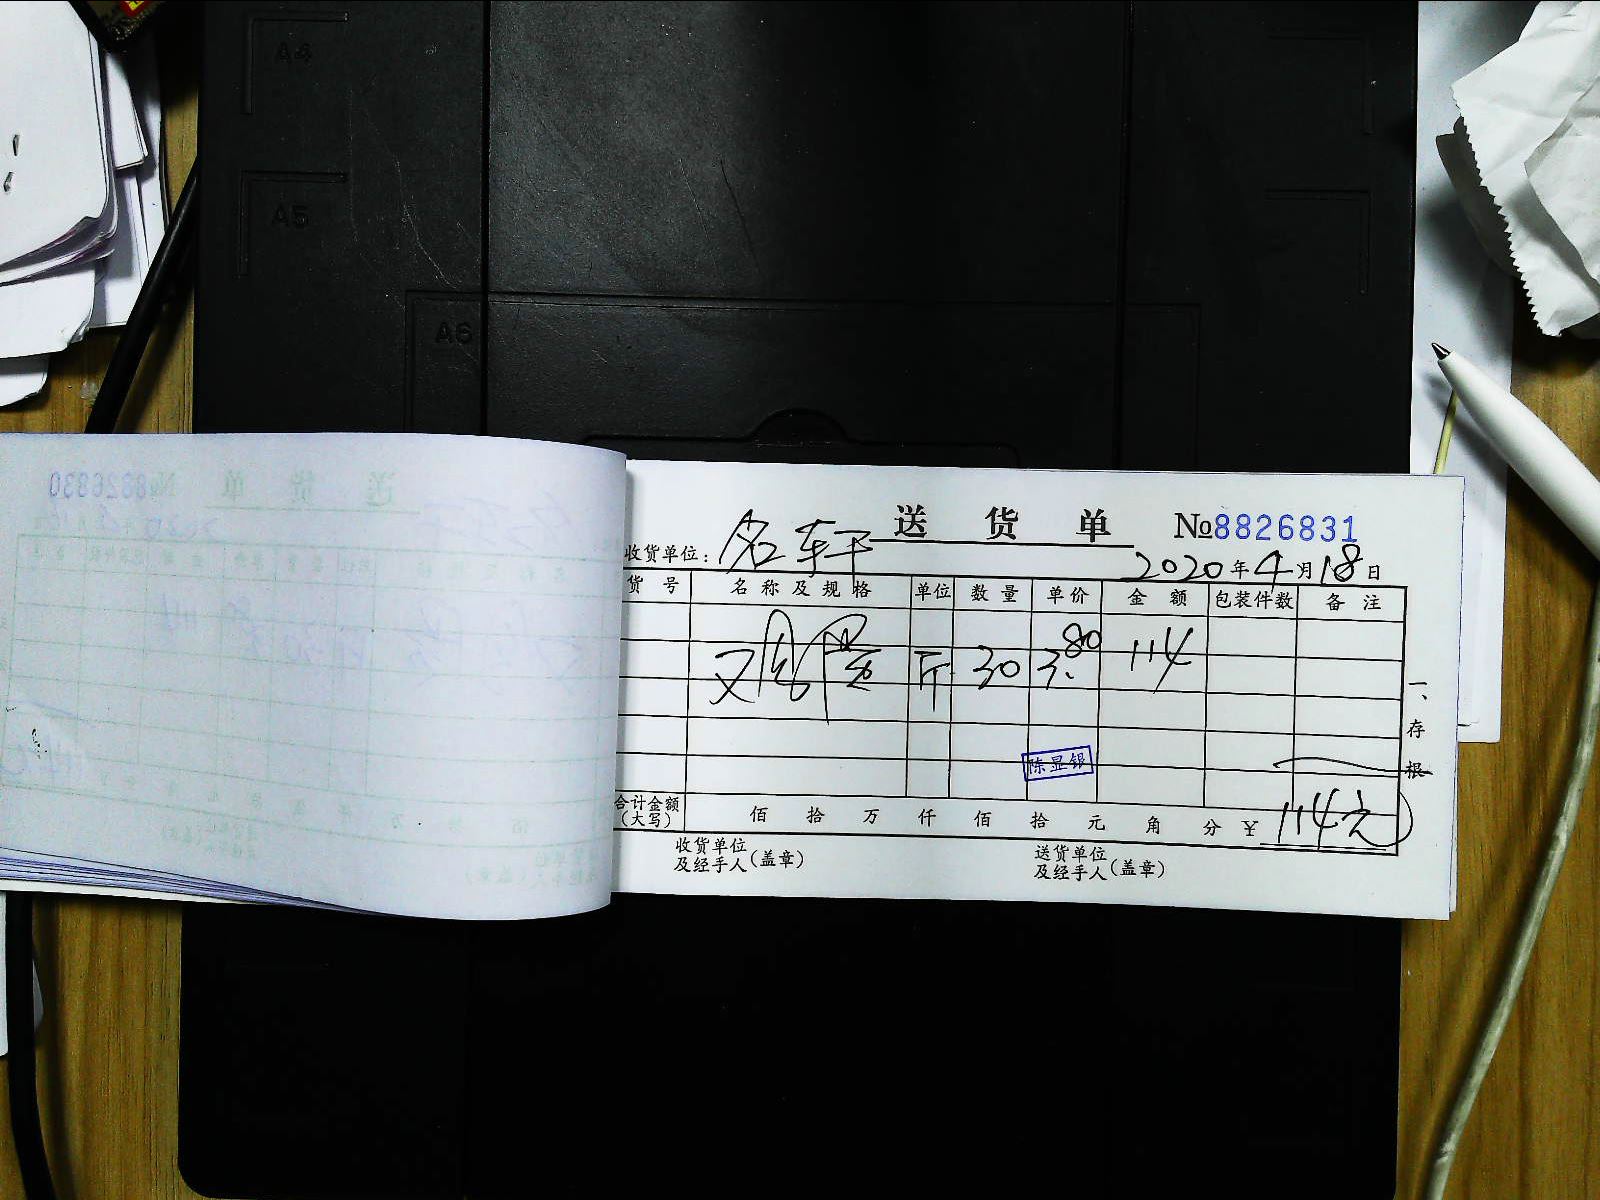 A4
A5
A6
送货单 №8826831
收货单位：名轩
2020年4月18日
货号 名称及规格 单位 数量 单价 金额 包装件数 备注
斤 30 3.80 114
陈显银
合计金额（大写） 佰 拾 万 仟 佰 拾 元 角 分 ¥ 114元
收货单位及经手人（盖章） 送货单位及经手人（盖章）
一、存根
送货单 №8826830